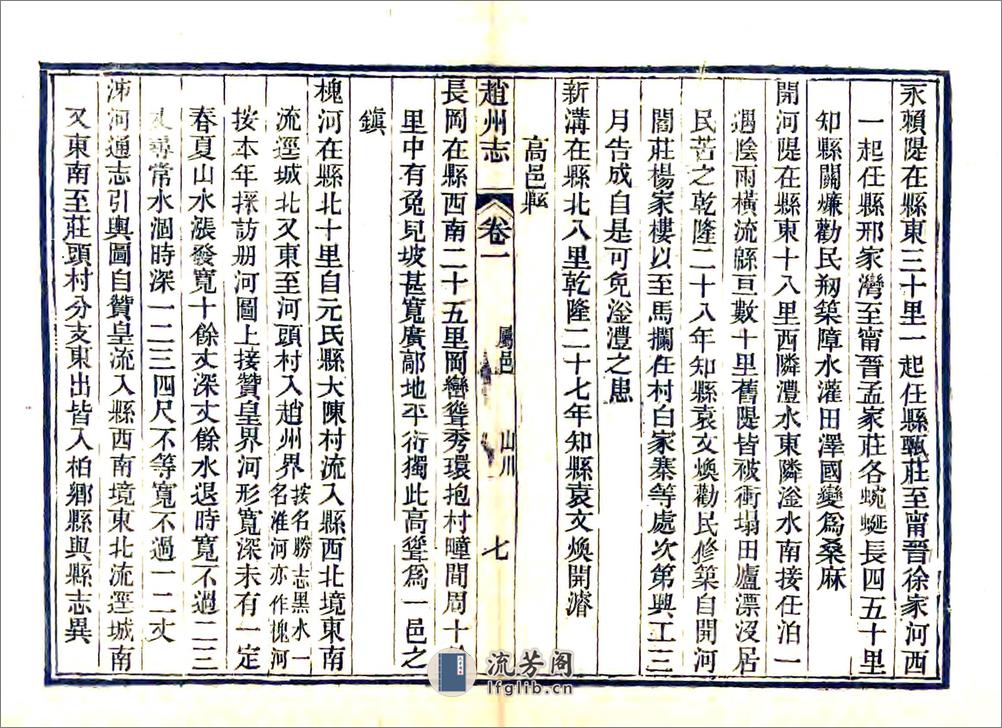 永賴隄在縣東三十里一起任縣甄莊至甯晉徐家河西
一起任縣邢家灣至甯晉孟家莊各蜿蜒長四五十里
知縣關爌勸民剏築障水灌田澤國變爲桑麻
開河隄在縣東十八里西隣澧水東隣滏水南接任泊一
遇陰雨橫流緜亘數十里舊隄皆被衝塌田廬漂沒居
民苦之乾隆二十八年知縣袁文煥勸民修築自開河
閻莊楊家樓以至馬攔任村白家寨等處次第興工三
月告成自是可免滏澧之患
新溝在縣北八里乾隆二十七年知縣袁文煥開濬
高邑縣
趙州志 卷一 屬邑 山川 七
長岡在縣西南二十五里岡巒聳秀環抱村疃間周十
里中有兔兒坡甚寬廣鄗地平衍獨此高聳爲一邑之
鎭
槐河在縣北十里自元氏縣大陳村流入縣西北境東南
流逕城北又東至河頭村入趙州界按名勝志黑水一名淮河亦作槐河
按本年採訪册河圖上接贊皇界河形寬深未有一定
春夏山水漲發寬十餘丈深丈餘水退時寬不過二三
丈尋常水涸時深一二三四尺不等寬不過一二丈
泲河通志引輿圖自贊皇流入縣西南境東北流逕城南
又東南至莊頭村分支東出皆入柏鄉縣與縣志異
流芳阁
lfglib.cn